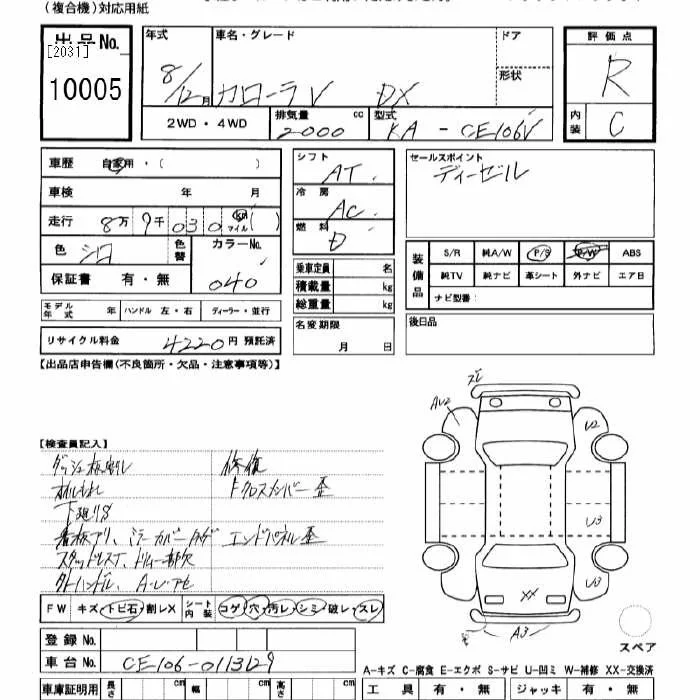 (複合機)対応用紙
出品No.
[2031]
10005
年式
8/12月
車名・グレード
カローラV DX
ドア
形状
評価点
R
2WD・4WD
排気量 cc
2000
型式
KA - CE106V
内装
C
車歴 自家用・( )
車検 年 月
走行 8万 9千 030 km マイル ( )
色 シロ
色替
カラーNo.
040
保証書 有・無
モデル年式 年 ハンドル 左・右 ディーラー・並行
リサイクル料金 4220円 預託済
シフト
AT
冷房
AC
燃料
D
乗車定員 名
積載量 kg
総重量 kg
名変期限
月 日
セールスポイント
ディーゼル
装備品
S/R 純A/W P/S P/W ABS
純TV 純ナビ 革シート 外ナビ エアB
ナビ型番:
後日品
【出品店申告欄(不良箇所・欠品・注意事項等)】
【検査員記入】
修復
オイルもれ
FクロスメンバーE歪
下廻りS
エンドパネル歪
FW キズ トビ石 割レX シート内装 コゲ 穴 汚レ シミ 破レ スレ
登録No.
車台No. CE106-0113129
車庫証明用 長さ cm 幅 cm 高さ cm
AU2
U2
U3
U3
XX
A3
スペア
A-キズ C-腐食 E-エクボ S-サビ U-凹ミ W-補修 XX-交換済
工具 有・無 ジャッキ 有・無